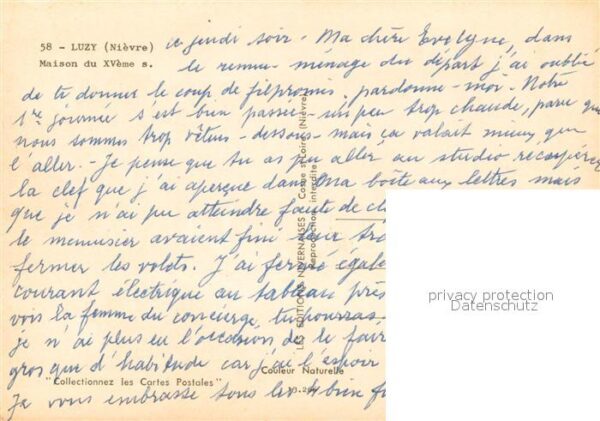 58 - LUZY (Nièvre)
Maison du XVème s.
ce jeudi soir - Ma chère Evelyne, dans
le remue-ménage du départ j'ai oublié
de te donner le coup de fil promis, pardonne-moi. Notre
1re journée s'est bien passée - un peu trop chaude, parce que
nous sommes trop vêtus - dessous - mais ça valait mieux que
l'aller. - Je pense que tu as pu aller au studio récupérer
la clef que j'ai aperçue dans ma boîte aux lettres mais
que je n'ai pu atteindre faute de cl
le menuisier avaient fini leur tra
fermer les volets. J'ai fermé égale
courant électrique au tableau près
vois la femme du concierge, tu pourras
je n'ai plus eu l'occasion de le fair
gros que d'habitude car j'ai l'espoir
Je vous embrasse tous les 4 bien f
"Collectionnez les Cartes Postales"
Couleur Naturelle
LES EDITIONS NIVERNAISES - Cosne s/Loire (Nièvre)
Reproduction interdite
privacy protection
Datenschutz